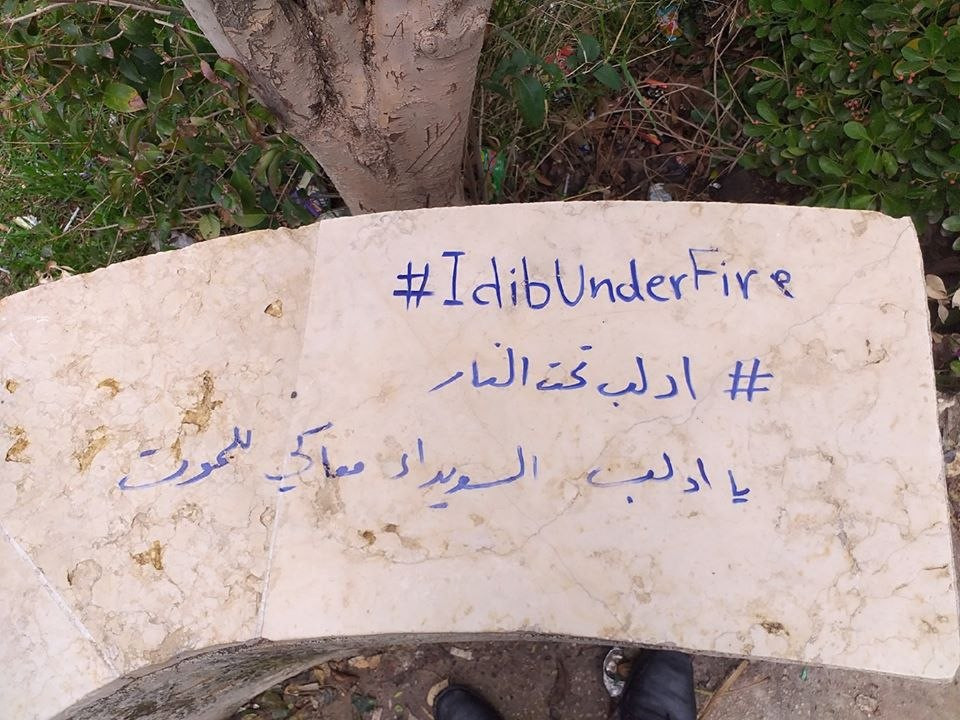 #IdibUnderFire
# ادلب تحت النار
يا ادلب السويداء معاكي للموت